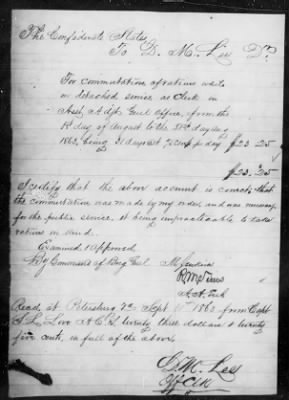 The Confederate States
To D. M. Lee Dr.
For commutation of rations while
on detached service as Clerk in
Asst. Adjt. Genl Office, from the
1st day of August to the 31st day of Aug
1863, being 31 days at 75 cts p day $23.25
$23.25
I certify that the above account is correct, that
the commutation was made by my order, and was necessary
for the public service, it being impracticable to take
rations in kind.
Examined & Approved
By Command of Brig Genl M. Jenkins
A. A. Genl
Recd at Petersburg Va Sept 1863 from Capt
J. L. Love A.C.S. twenty three dollars & twenty
five cents, in full of the above
D. M. Lee
Off Clk